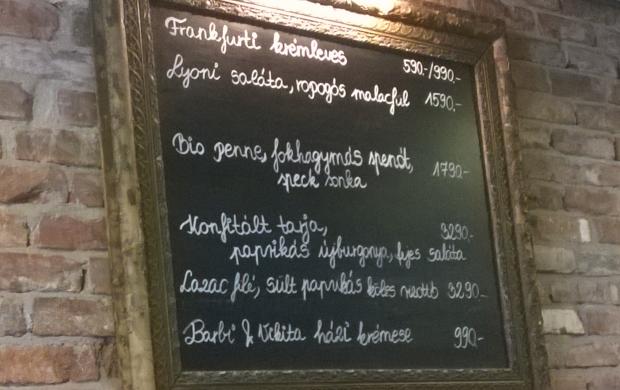 Frankfurti krémleves 590-/990.-
Lyoni saláta, ropogós malacfül 1590.-
Bio penne, fokhagymás spenót, 1790-
speck sonka
Konfitált tarja, 3290.-
paprikás újburgonya, fejes saláta
Lazac filé, sült paprikás köles rizottó 3290-
Barbi & Vikita házi krémese 990-